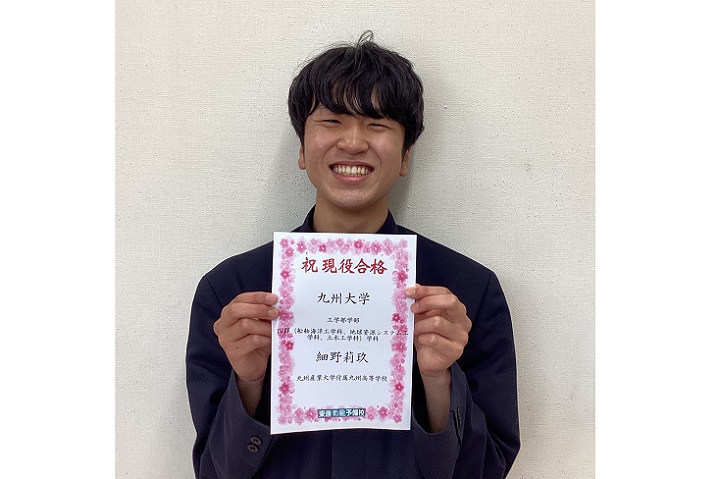 祝 現役合格
九州大学
工学部学部
Ⅳ群（船舶海洋工学科、地球資源システム工
学科、土木工学科）学科
細野莉玖
九州産業大学付属九州高等学校
東進衛星予備校